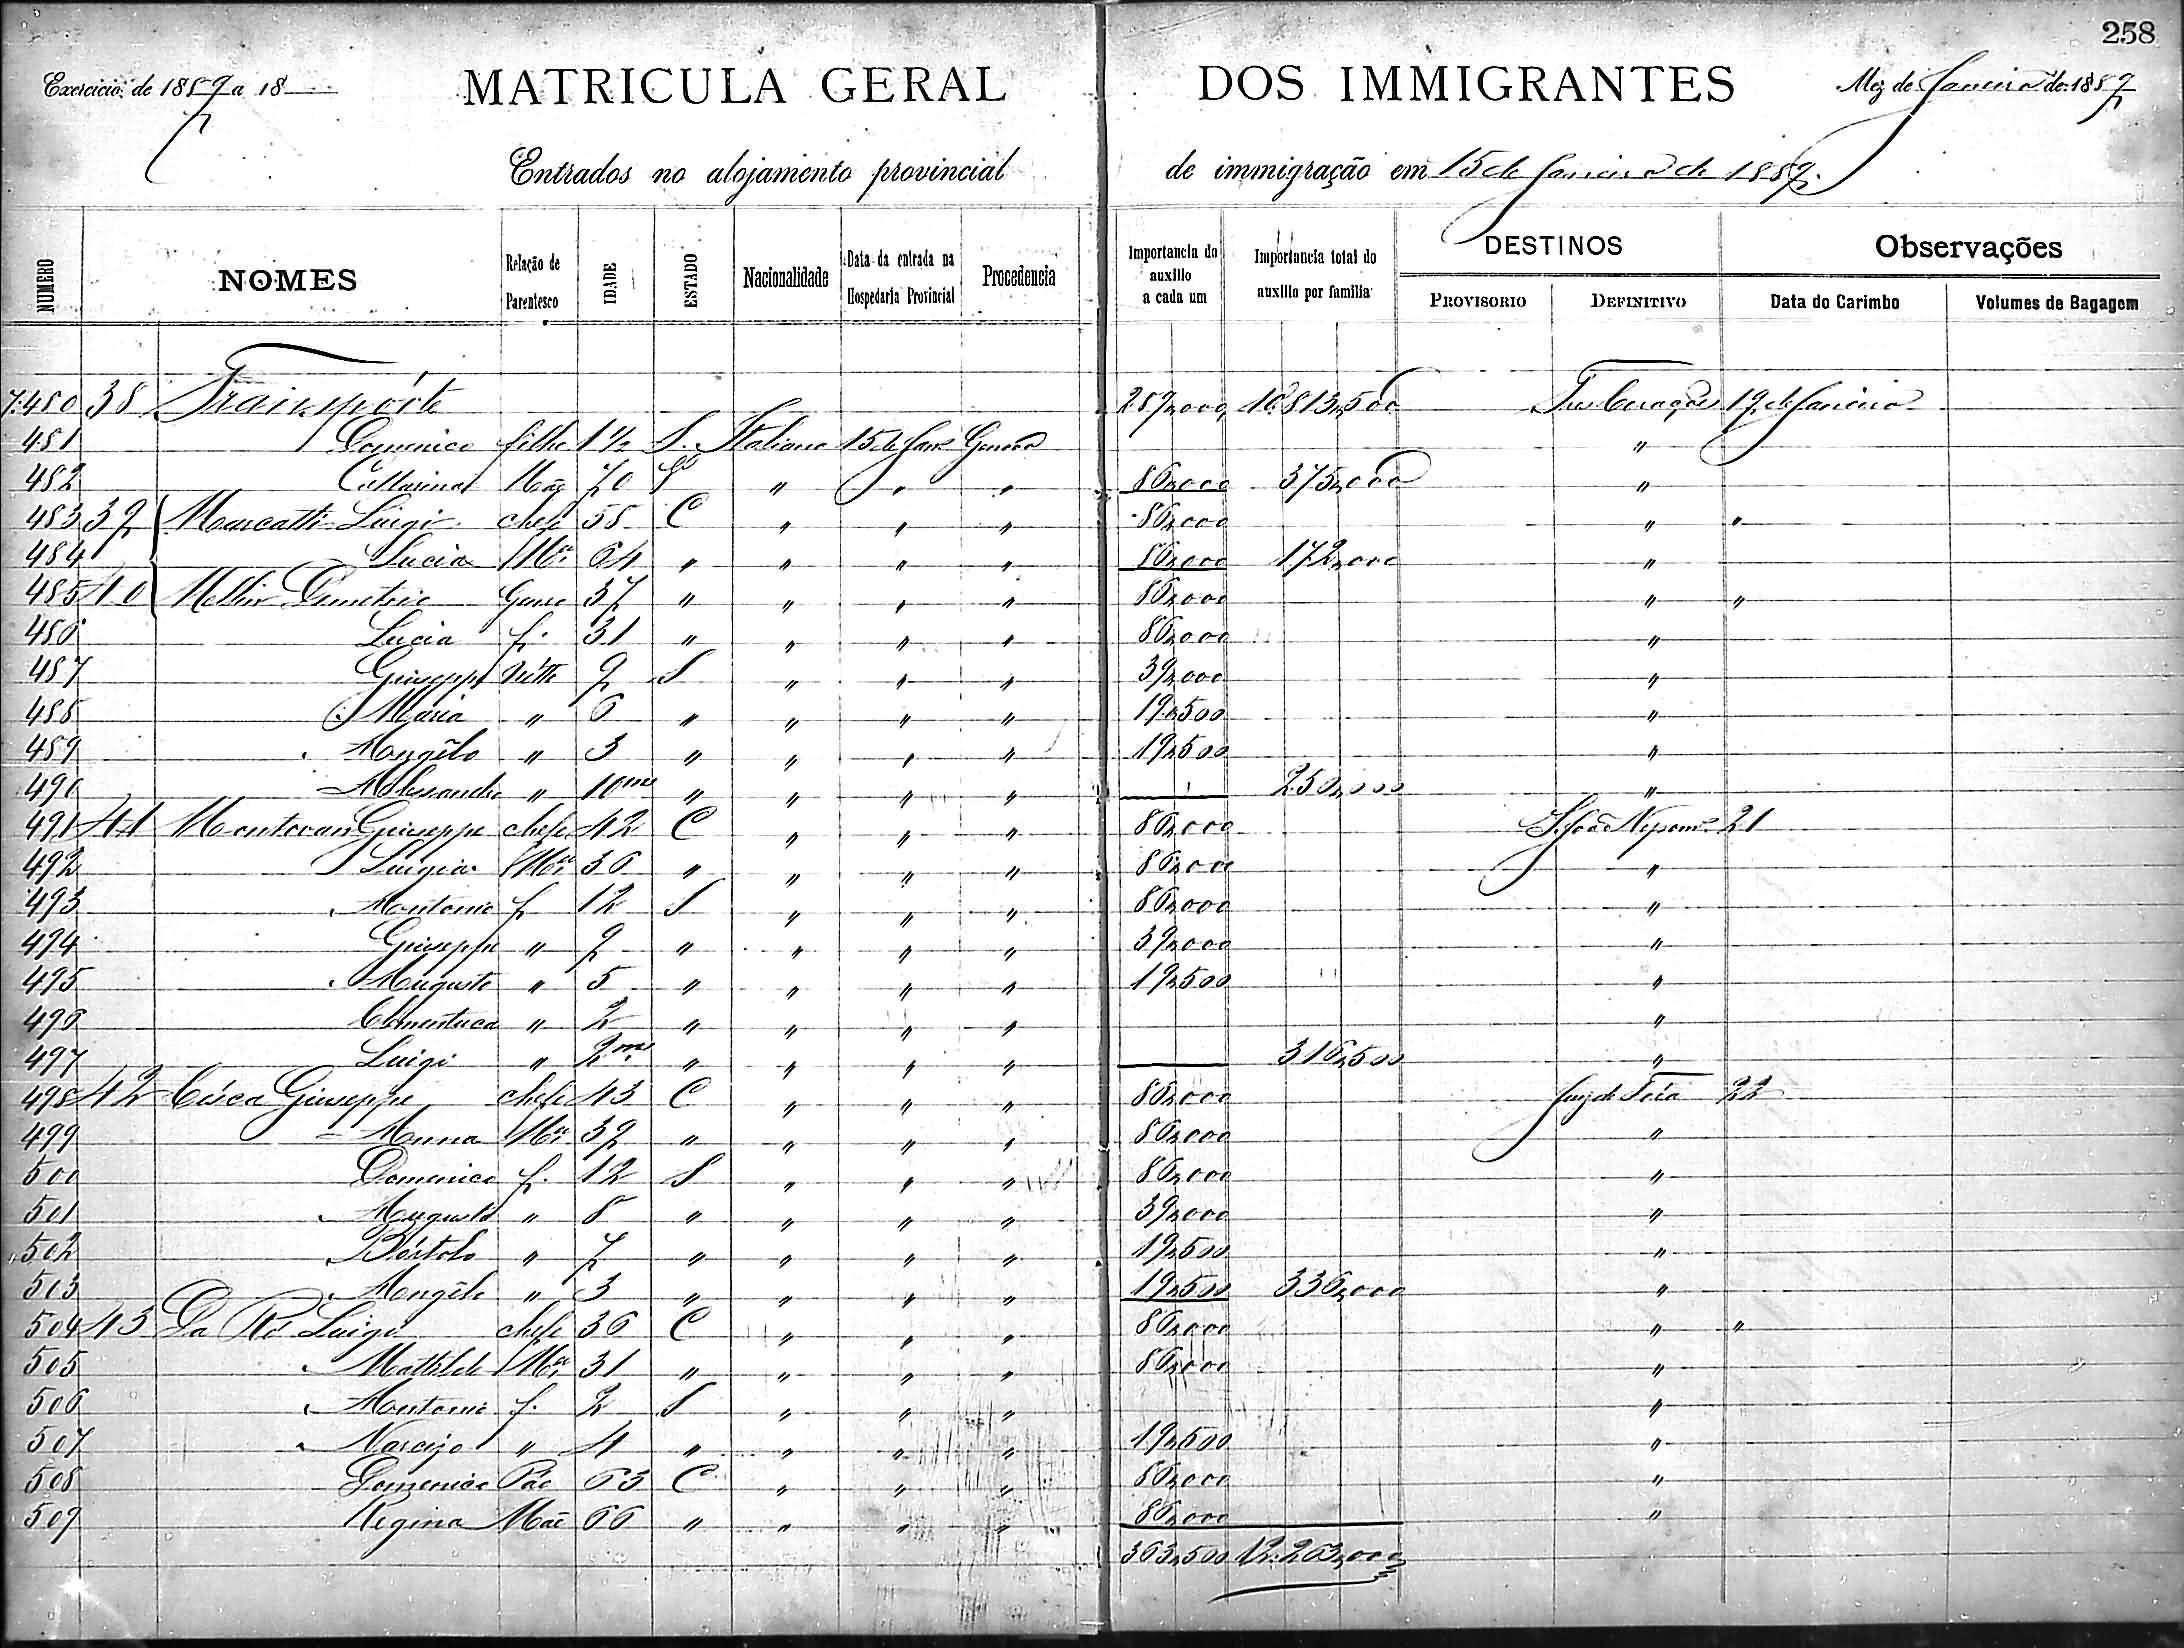 258
Exercicio de 1889 a 18
MATRICULA GERAL DOS IMMIGRANTES
Mez de Janeiro de 1889
Entrados no alojamento provincial de immigração em 15 de Janeiro de 1889.
NUMERO NOMES Relação de Parentesco IDADE ESTADO Nacionalidade Data da entrada na Hospedaria Provincial Procedencia Importancia do auxilio a cada um Importancia total do auxilio por familia DESTINOS PROVISORIO DEFINITIVO Observações Data do Carimbo Volumes de Bagagem
7.480 38 Transpórte 289,000 10.813,500 Tres Corações 19 de Janeiro
481 Domenico filho 1 1/2 S. Italiano 15 de Janº Genova "
482 Catharina Mãe 70 " " " 86,000 375,000 "
483 39 Marcatti Luigi chefe 58 C " " " 86,000 " "
484 Lucia Mer 64 " " " " 86,000 172,000 "
485 40 Demetrio Genro 37 " " " " 86,000 " "
486 Lucia f. 31 " " " " 86,000 "
487 Giuseppe Netto 9 S " " " 39,000 "
488 Maria " 6 " " " " 19,500 "
489 Angélo " 3 " " " " 19,500 "
490 Alessandro " 10 mes " " " " 250,000 "
491 41 Mantovan Giuseppe chefe 42 C " " " 86,000 S. João Nepom. 21
492 Luigia Mer 36 " " " " 86,000 "
493 Antonio f 12 S " " " 86,000 "
494 Giuseppe " 9 " " " " 39,000 "
495 Augusto " 5 " " " " 19,500 "
496 " 2 " " " " "
497 Luigi " 2 ms " " " " 316,500 "
498 42 Giuseppe chefe 43 C " " " 86,000 Juiz de Fóra 22
499 Anna Mer 39 " " " " 86,000 "
500 Domenico f. 12 S " " " 86,000 "
501 Augusto " 8 " " " " 39,000 "
502 Bórtolo " 7 " " " " 19,500 "
503 Angélo " 3 " " " " 19,500 336,000 "
504 43 Da Ré Luigi chefe 36 C " " " 86,000 " "
505 Mathilde Mer 31 " " " " 86,000 "
506 Antonio f. 2 S " " " "
507 Narcizo " 4 " " " " 19,500 "
508 Domenico Pae 63 C " " " 86,000 "
509 Regina Mãe 66 " " " " 86,000 "
363,500 12.263,000